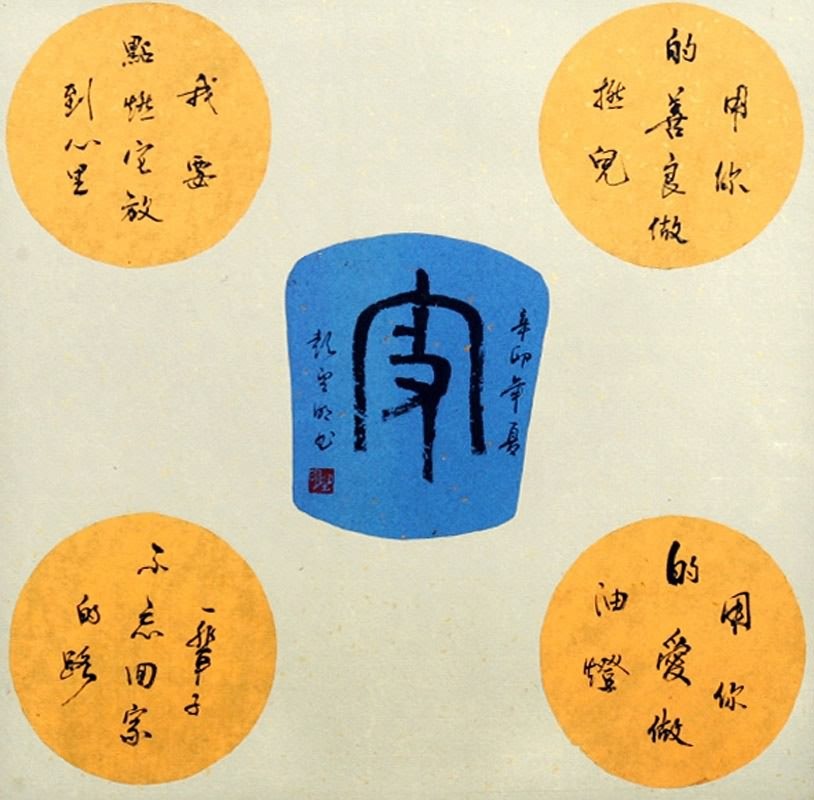 用你
的善良做
撚兒
用你
的愛做
油燈
我要
點燃它放
到心里
一輩子
不忘回家
的路
辛卯年夏